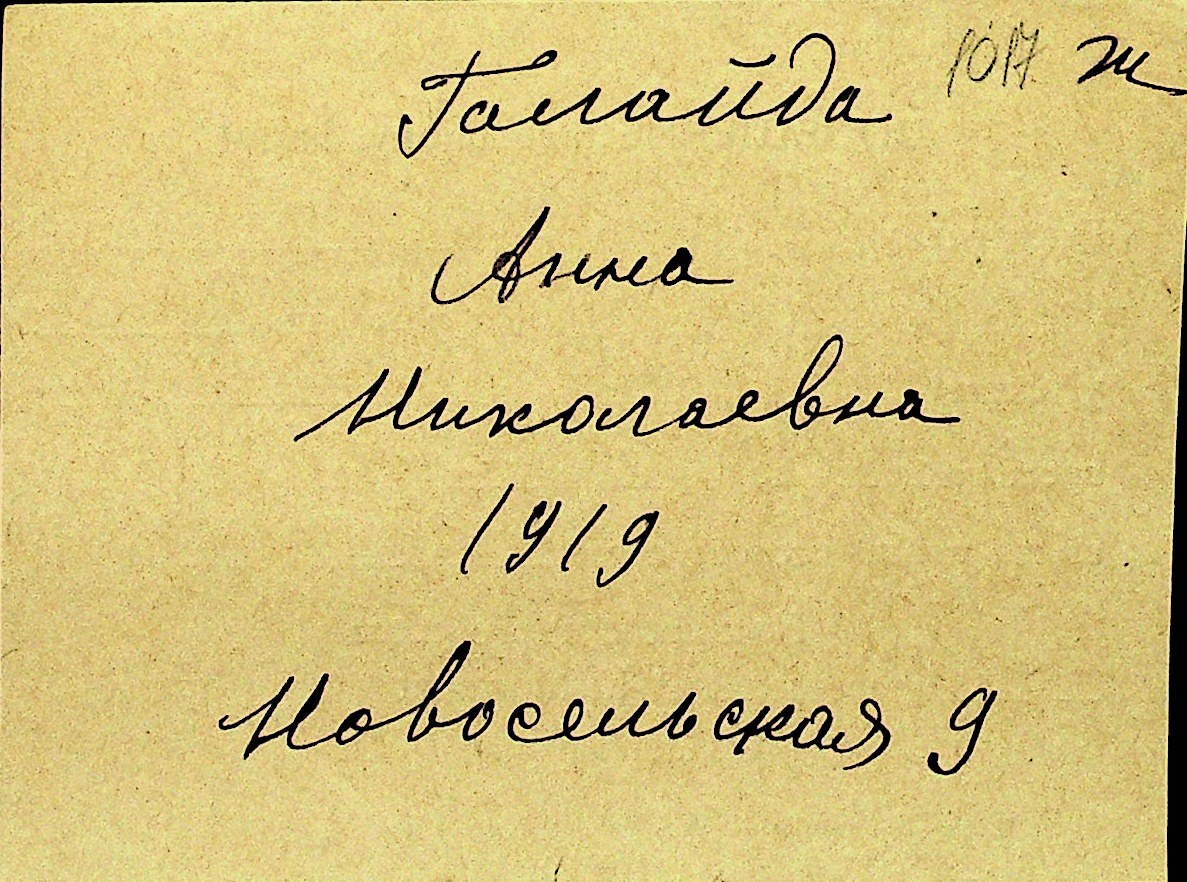 1017 ж
Галайда
Анна
Николаевна
1919
Новосельская 9